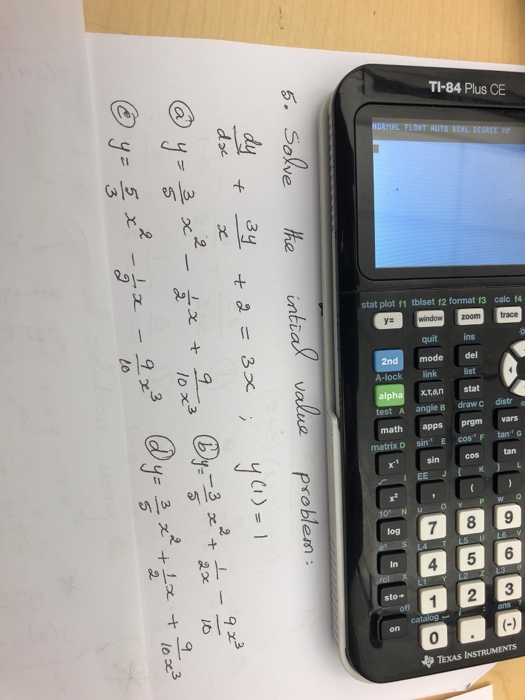 5. Solve the intial value problem:
dy/dx + 3y/x + 2 = 3x ; y(1) = 1
(a) y = 3/5 x² - 1/2 x + 9/10x³
(b) y = -3/5 x² + 1/2x - 9x³/10
(c) y = 5/3 x² - 1/2 x - 9/10 x³
(d) y = 3/5 x² + 1/2 x + 9/10x³
TI-84 Plus CE
NORMAL FLOAT AUTO REAL DEGREE MP
stat plot f1 tblset f2 format f3 calc f4
y= window zoom trace
quit ins
2nd mode del
A-lock link list
alpha X,T,θ,n stat
test A angle B draw C distr
math apps prgm vars
matrix D sin⁻¹ E cos⁻¹ F tan⁻¹ G
x⁻¹ sin cos tan
EE J { K } L
x² , ( )
10ˣ N u O v P w
log 7 8 9
L4 T L5 U L6 V
ln 4 5 6
rcl X L1 Y L2 Z L3
sto→ 1 2 3
off catalog : ans
on 0 . (-)
TEXAS INSTRUMENTS